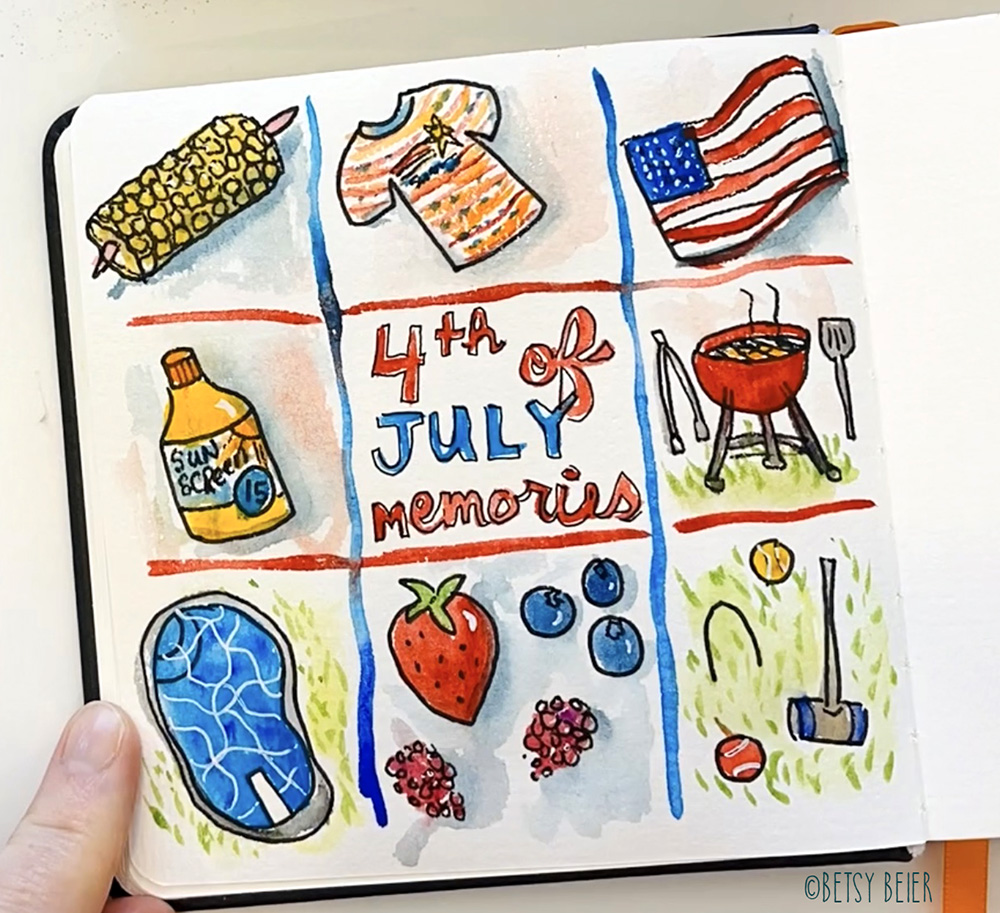 4th of
JULY
memories
SUN
SCREEN
15
©BETSY BEIER